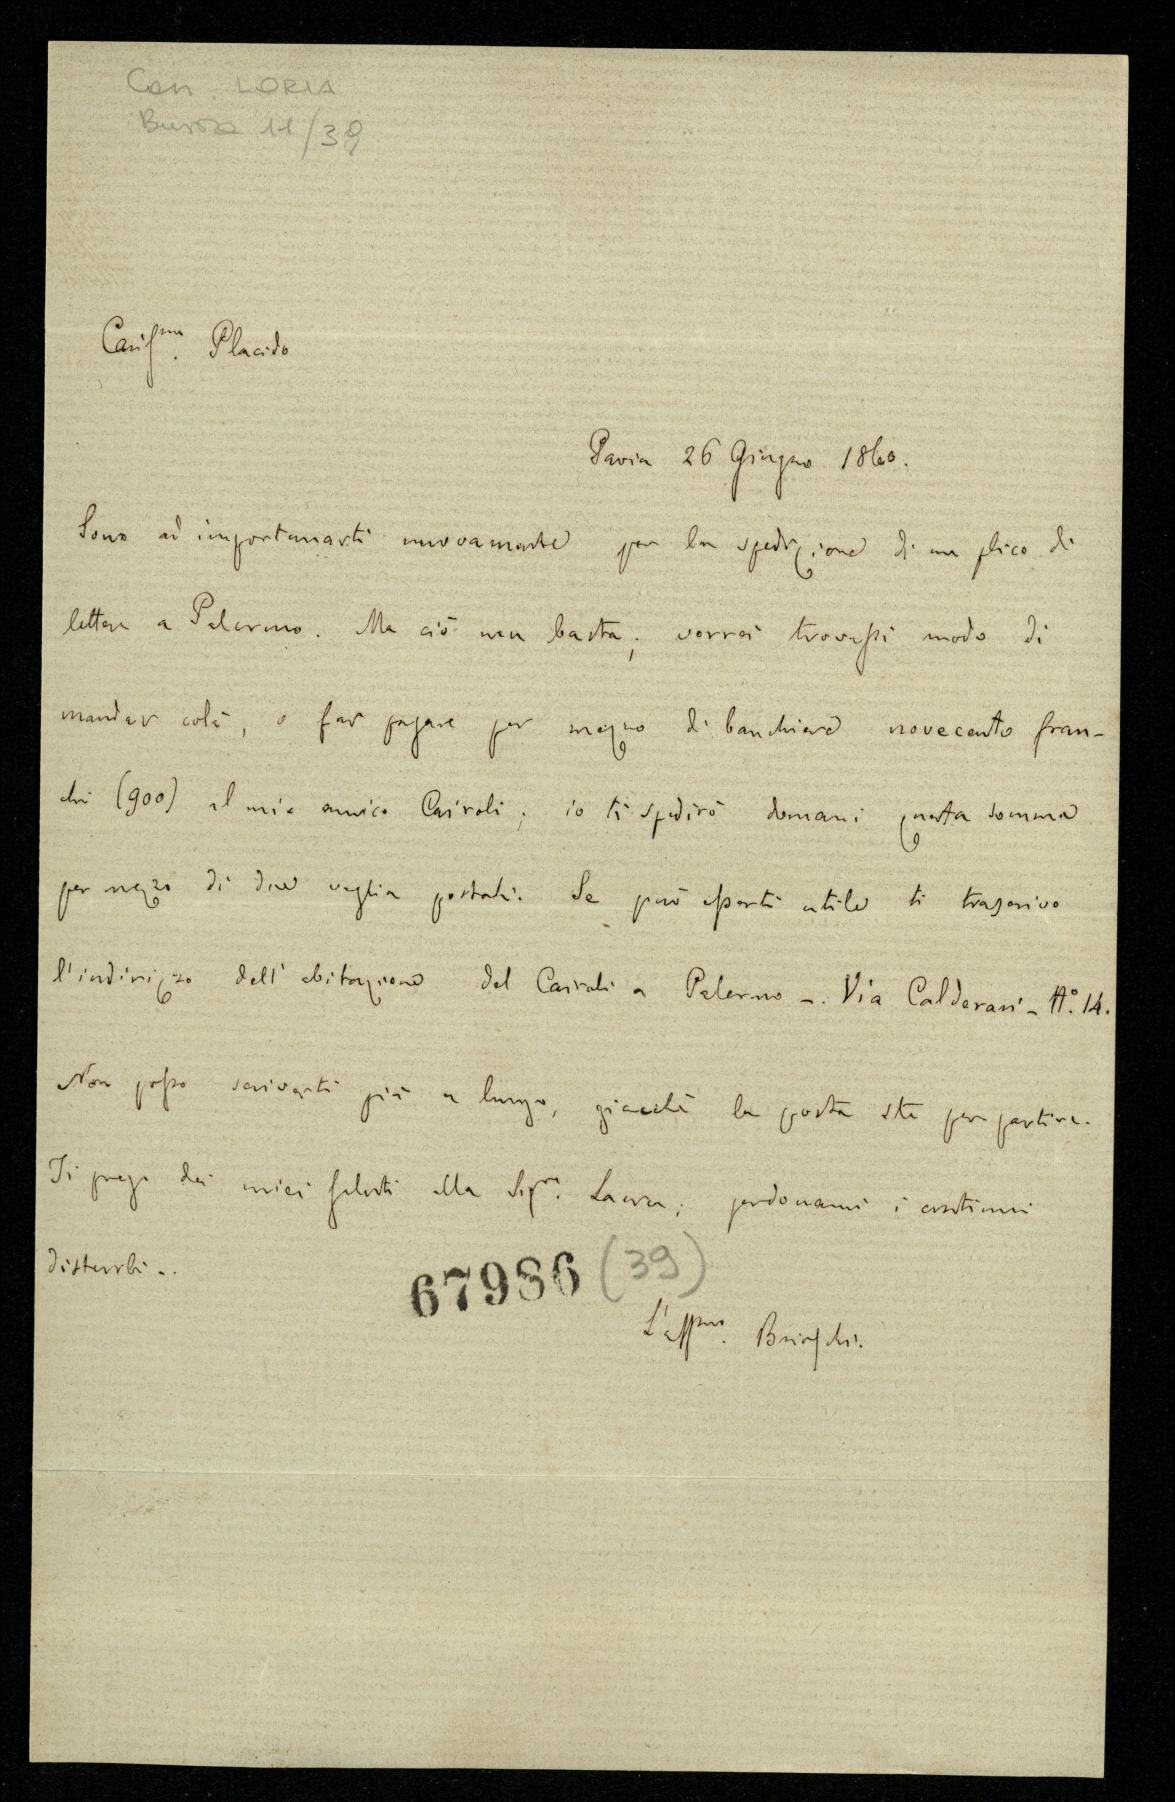 Cass. LORIA
Busta 11/39
Cariss.mo Placido
Pavia 26 Giugno 1860.
Sono ad importunarti nuovamente per la spedizione di un plico di
lettere a Palermo. Ma ciò non basta; vorrei trovassi modo di
mandar colà, o far pagare per mezzo di banchiere novecento fran-
chi (900) al mio amico Cairoli; io ti spedirò domani questa somma
per mezzo di due vaglia postali. Se può esserti utile ti trascrivo
l'indirizzo dell'abitazione del Cairoli a Palermo -. Via Calderari - N°. 14.
Non posso scriverti più a lungo, giacchè la posta sta per partire.
Ti prego dei miei saluti alla Sig.ra Laura; perdonami i continui
disturbi -.
67986 (39)
L'aff.mo Brioschi.